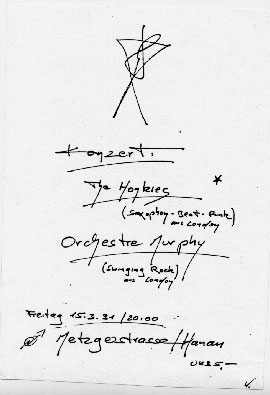 Konzert:
The Honkies *
(Saxophon-Beat-Punk)
aus London
Orchestre Murphy
(Swinging Rock)
aus London
Freitag 15.3.91/20.00
Metzgerstrasse/Hanau
5.-